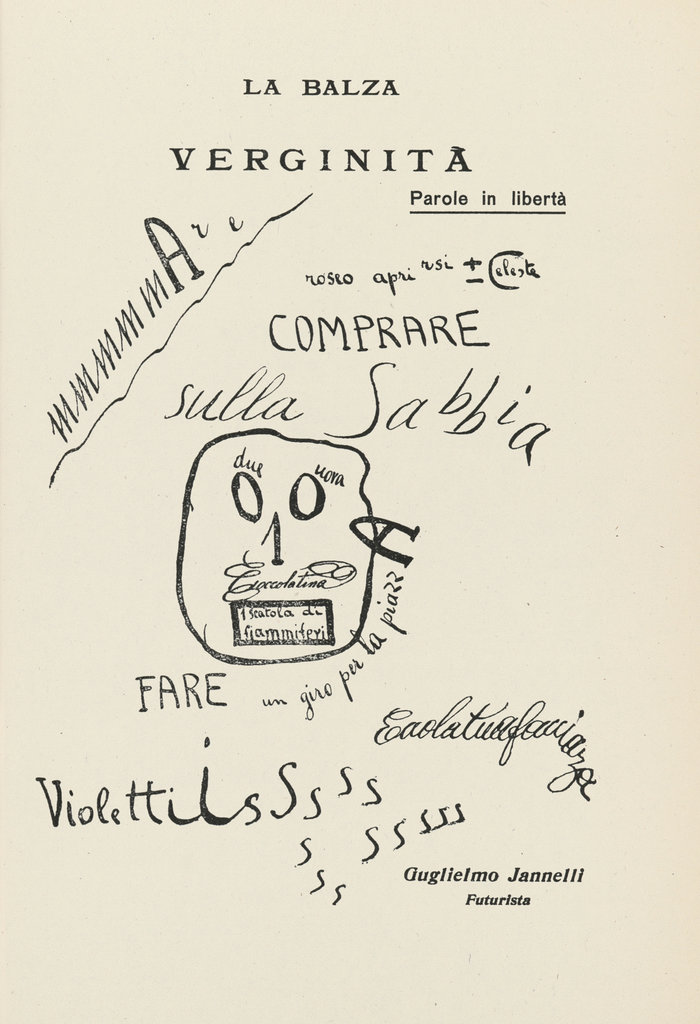 LA BALZA
VERGINITÀ
Parole in libertà
mmmmmmAre
roseo aprirsi ± Celeste
COMPRARE
sulla Sabbia
due uova
Cioccolatina
1 scatola di
fiammiferi
FARE un giro per la piazzA
Violettiissssss
sssss
sss
Guglielmo Jannelli
Futurista